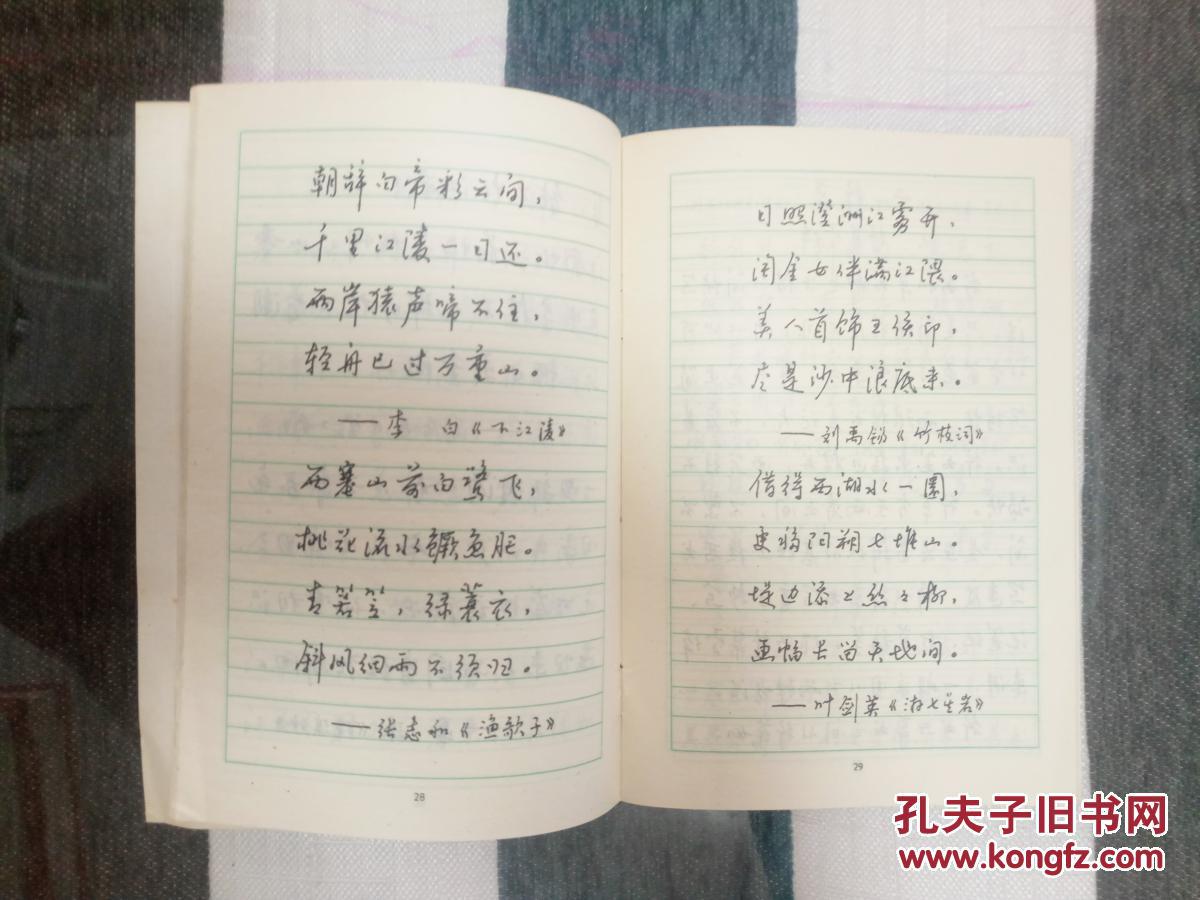 朝辞白帝彩云间，
千里江陵一日还。
两岸猿声啼不住，
轻舟已过万重山。
——李 白《下江陵》
西塞山前白鹭飞，
桃花流水鳜鱼肥。
青箬笠，绿蓑衣，
斜风细雨不须归。
——张志和《渔歌子》
28
日照澄洲江雾开，
淘金女伴满江隈。
美人首饰王侯印，
尽是沙中浪底来。
——刘禹锡《竹枝词》
借得西湖水一圜，
更移阳朔七堆山。
堤边添上丝丝柳，
画幅长留天地间。
——叶剑英《游七星岩》
29
孔夫子旧书网
www.kongfz.com